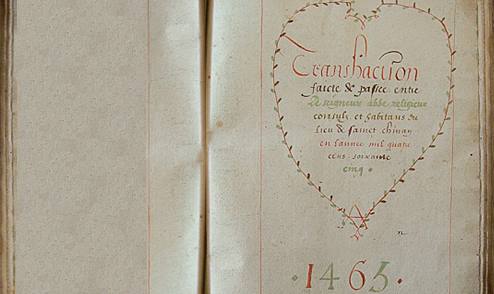 Transhaction
faicte & passee entre
Le seigneur abbe religieux
consulz et habitans du
lieu de sainct chinay
en lannee mil quatre
cens soixante
cinq .
. 1465 .